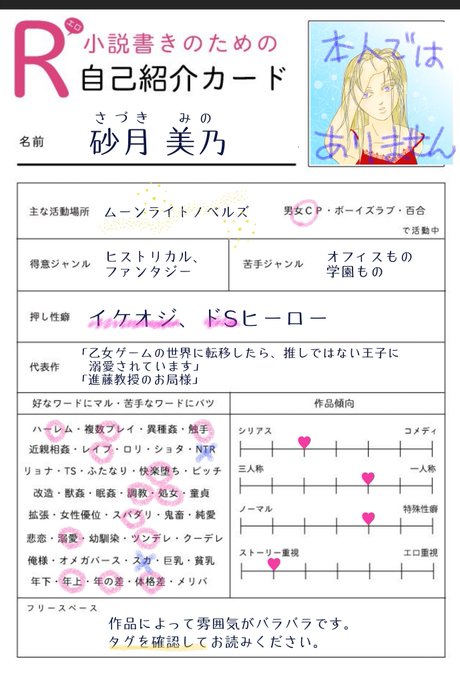 R
エロ
小説書きのための
自己紹介カード
本人では
ありません
さづき みの
名前 砂月 美乃
主な活動場所 ムーンライトノベルズ 男女CP・ボーイズラブ・百合
で活動中
得意ジャンル ヒストリカル、
ファンタジー
苦手ジャンル オフィスもの
学園もの
押し性癖 イケオジ、ドSヒーロー
代表作 「乙女ゲームの世界に転移したら、推しではない王子に
溺愛されています」
「進藤教授のお局様」
好なワードにマル・苦手なワードにバツ
ハーレム・複数プレイ・異種姦・触手
近親相姦・レイプ・ロリ・ショタ・NTR
リョナ・TS・ふたなり・快楽堕ち・ビッチ
改造・獣姦・眠姦・調教・処女・童貞
拡張・女性優位・スパダリ・鬼畜・純愛
悲恋・溺愛・幼馴染・ツンデレ・クーデレ
俺様・オメガバース・スカ・巨乳・貧乳
年下・年上・年の差・体格差・メリバ
作品傾向
シリアス コメディ
三人称 一人称
ノーマル 特殊性癖
ストーリー重視 エロ重視
フリースペース
作品によって雰囲気がバラバラです。
タグを確認してお読みください。